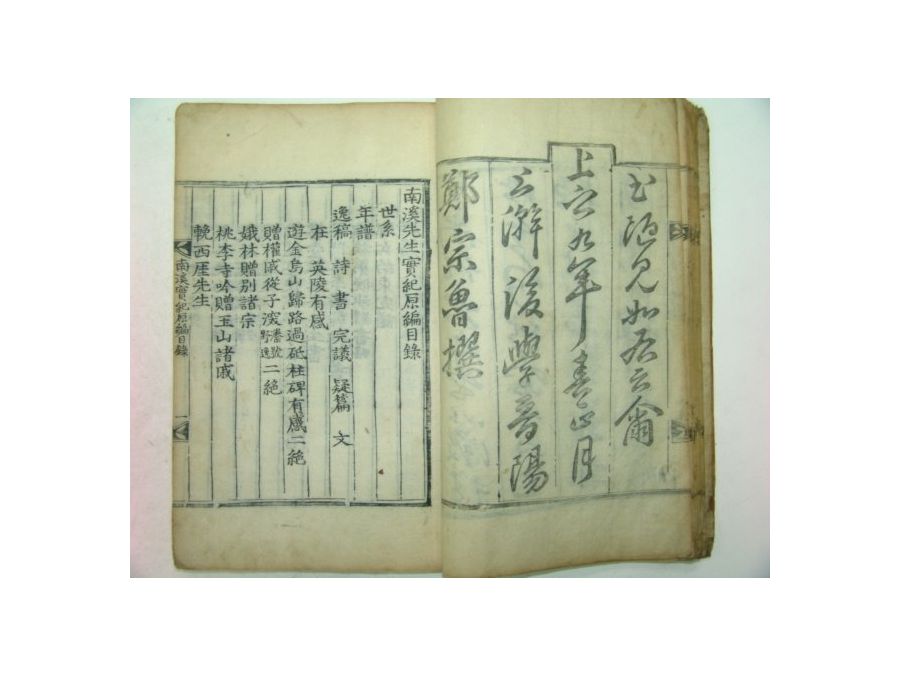 書酒見如右云爾
上之九年春正月
上澣後學晉陽
鄭宗魯撰
南溪先生實紀原編目錄
世系
年譜
逸稿 詩 書 完議 疑篇 文
在 英陵有感
遊金烏山歸路過砥柱碑有感二絶
贈權戚從子 二絶
娥林贈別諸宗
桃李寺吟贈玉山諸戚
輓西厓先生
南溪實紀原編目錄 一